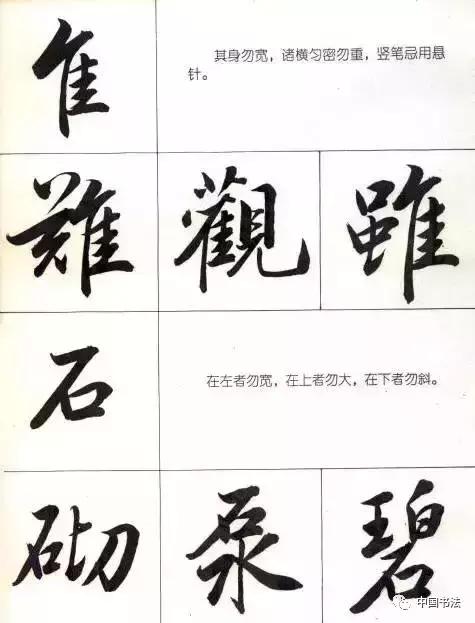 隹
其身勿宽，诸横匀密勿重，竖笔忌用悬
针。
難 觀 雖
石
在左者勿宽，在上者勿大，在下者勿斜。
砌 泵 碧
中国书法